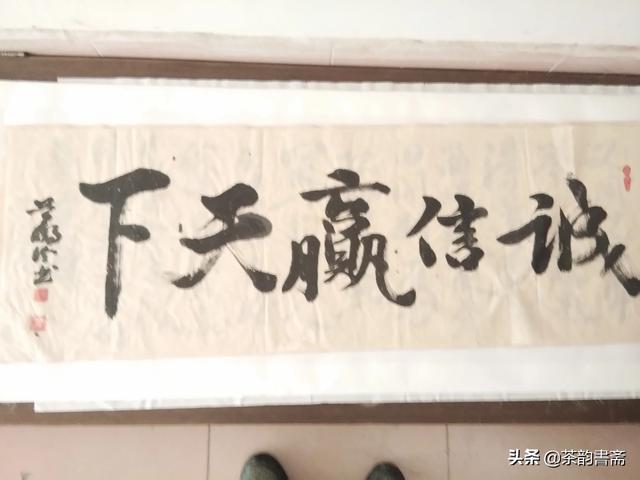 诚信赢天下
头条 @茶韵書斋